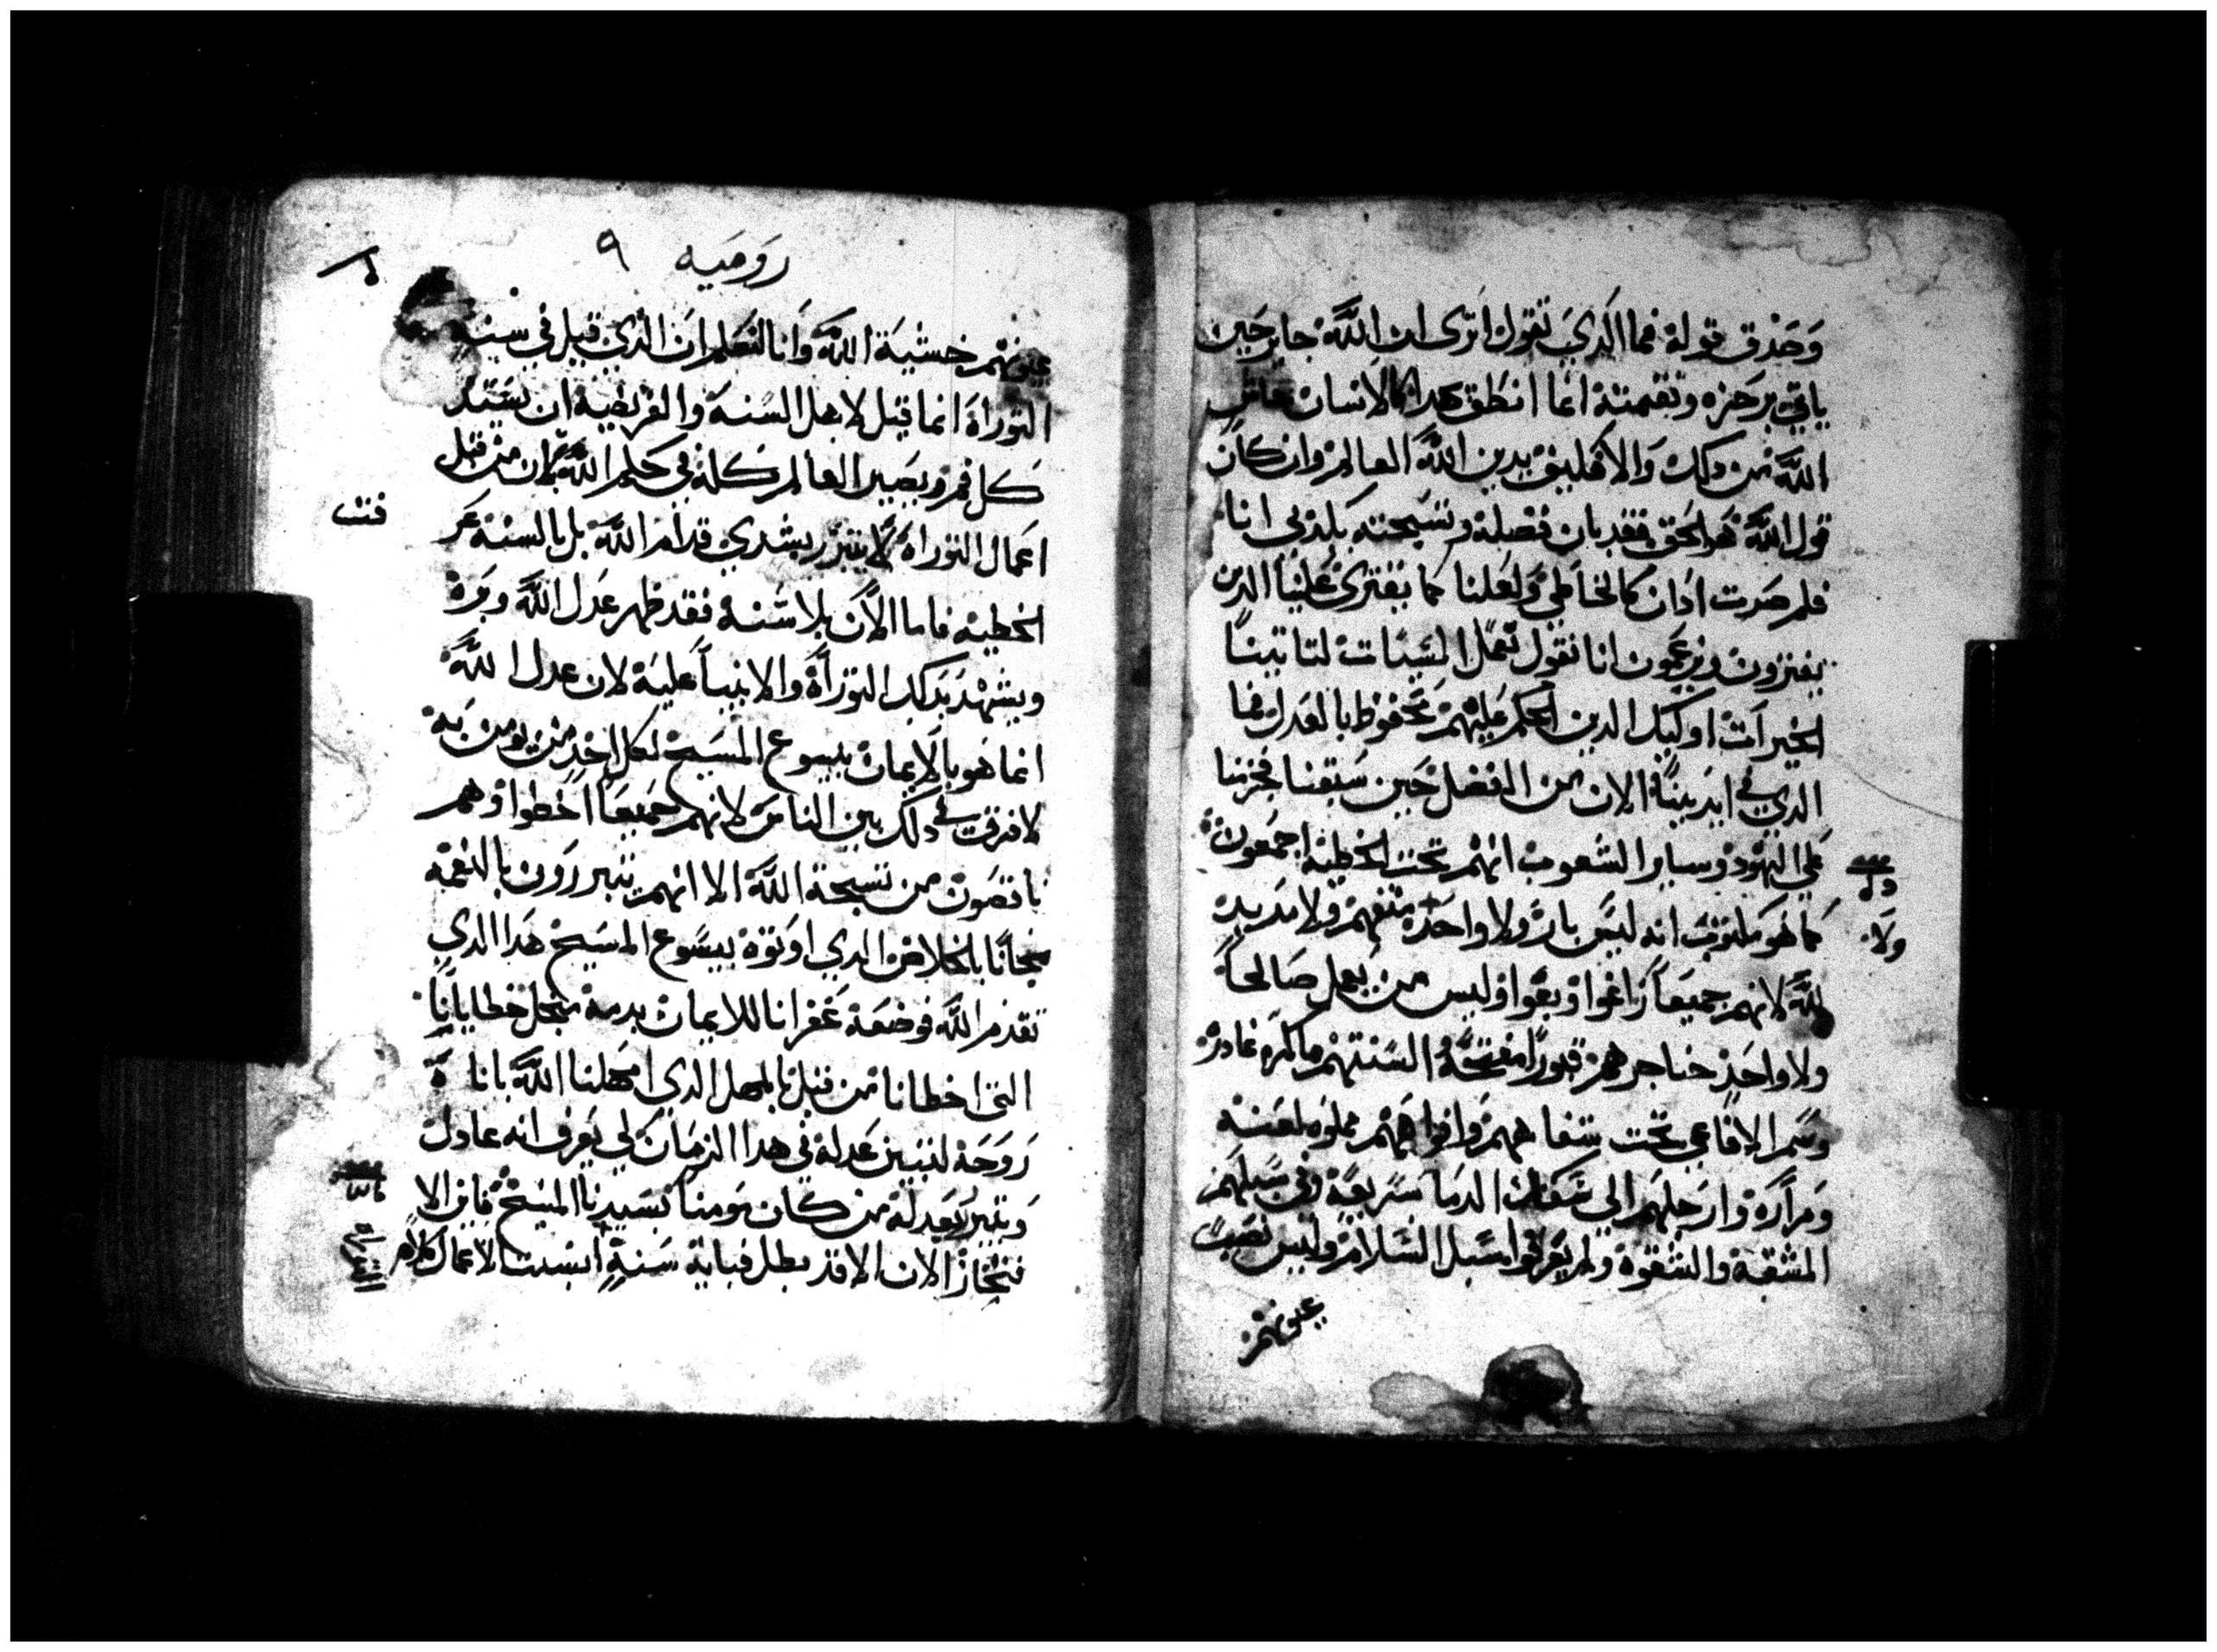 وَحَذق قوله فما الذي نقول اترى ان اللَّه جاير حين
ياتي برجزه ونقمته انما انطق هدا كالانسان حاش
اللَّه من دلك والا فكيف يدين اللَّه العالم وان كان
قول اللَّه هو الحق فقد بان فضله وتسبحته بكدبي انا
فلم صرت ادان كالخاطي ولعلنا كما يفترى علينا الدين
يفترون ويزعمون انا نقول نعمل السيات لتاتينا
الخيرات اوليك الدين الحكم عليهم محفوظ بالعدل فما
الدي في ايدينا الان من الفضل حين سبقنا فجزمنا
على اليهود وساير الشعوب انهم تحت الخطية اجمعون
كما هو مكتوب انه ليس بار ولا واحد متفهم ولا مريد
للَّه لانهم جميعاً زاغوا وبغوا وليس من يعمل صالحاً
ولا واحد حناجرهم قبوراً مفتحة السنتهم ماكره غادره
وسم الافاعي تحت شفاههم وافواههم مملوه لعنه
ومراره وارجلهم الى سفك الدما سريعة وفي سبلهم
المشقة والشقوة ولم يعرفوا سبل السلامة وليس نصب
عيونهم
ولا
روميه ٩
عيونهم خشية اللَّه وانا لنعلم ان الذي قيل في سنة
التوراة انما قيل لاهل السنة والفريضه ان يستد
كل فم ويصير العالم كله في حكم اللَّه لان من قبل
اعمال التوراة لا يتبرر بشري قدام اللَّه بل بالسنة عر
الخطيه فاما الان بلا سنة فقد ظهر عدل اللَّه وبره
ويشهد بدلك التوراة والانبيا عليه لان عدل اللَّه
انما هو بالايمان بيسوع المسيح لكل احد من يومن به
لا فرق في دلك بين الناس لانهم جميعاً اخطوا وهم
ناقصون من تسبحة اللَّه الا انهم يتبررون بالنعمة
مجاناً بالخلاص الدي اوتوه بيسوع المسيح هدا الدي
تقدم اللَّه فوضعه غفرانا للايمان بدمه من اجل خطايانا
التي اخطانا من قبل بالمهل الدي امهلنا اللَّه باناة
روحه لتبيين عدله في هدا الزمان لكي يعرف انه عادل
ويتبرر بعدله من كان مومناً بسيدنا المسيح فاين الا
فتخار الان الا قد بطل فباية سنة ابسنت الاعمال كلا